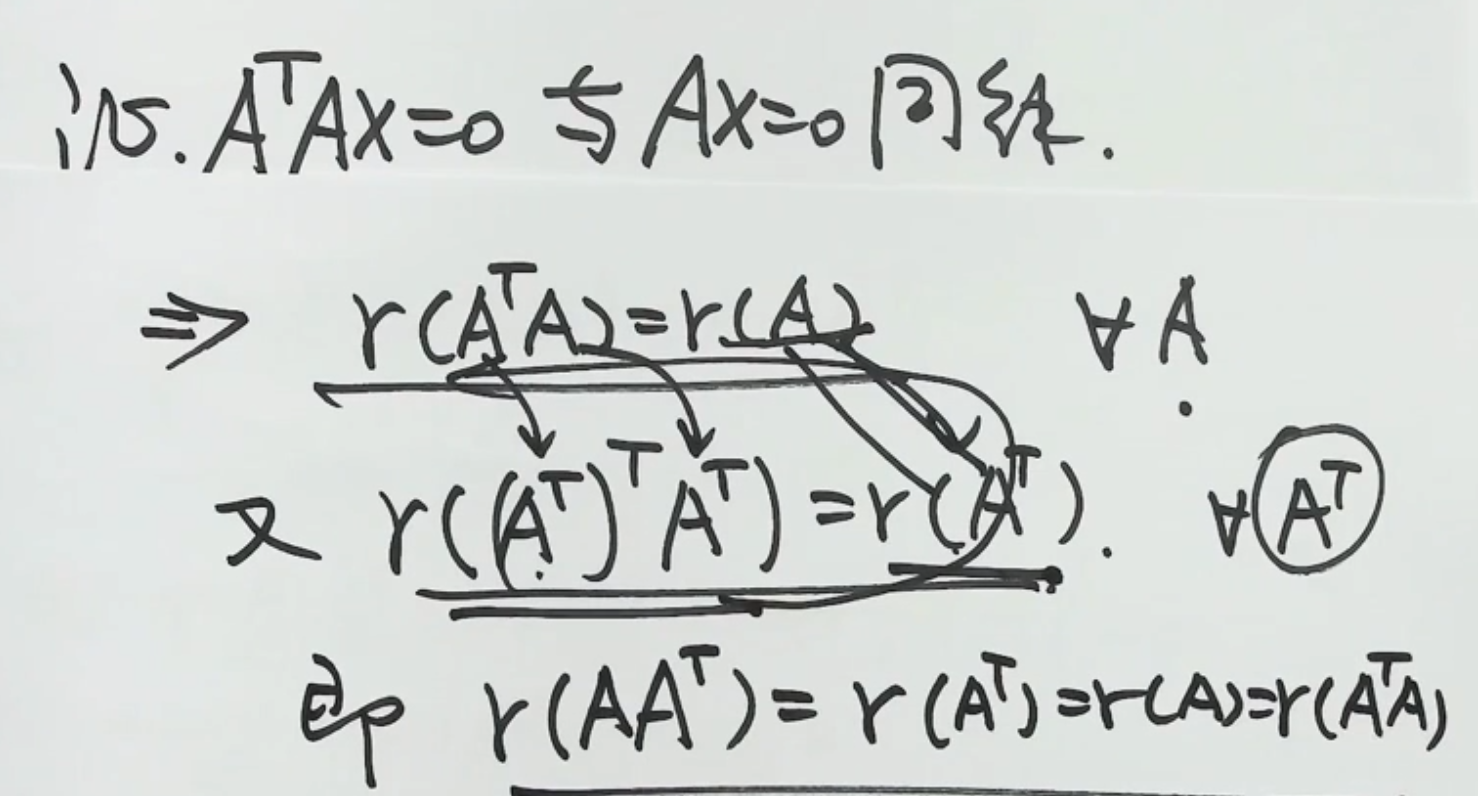 证. AᵀAx=0 与 Ax=0 同解.
⇒ r(AᵀA)=r(A) ∀ A
又 r((Aᵀ)ᵀAᵀ)=r(Aᵀ). ∀ Aᵀ
即 r(AAᵀ)=r(Aᵀ)=r(A)=r(AᵀA)